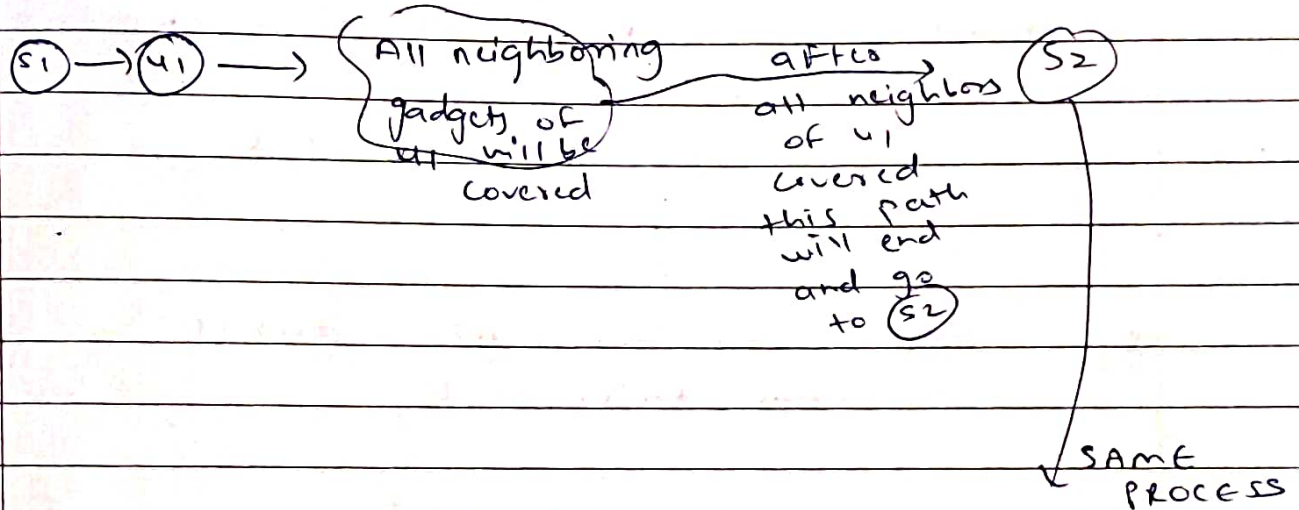 S1 → u1 → All neighboring
gadgets of
u1 will be
covered
after
all neighbors
of u1
covered
this path
will end
and go
to S2
S2
SAME
PROCESS